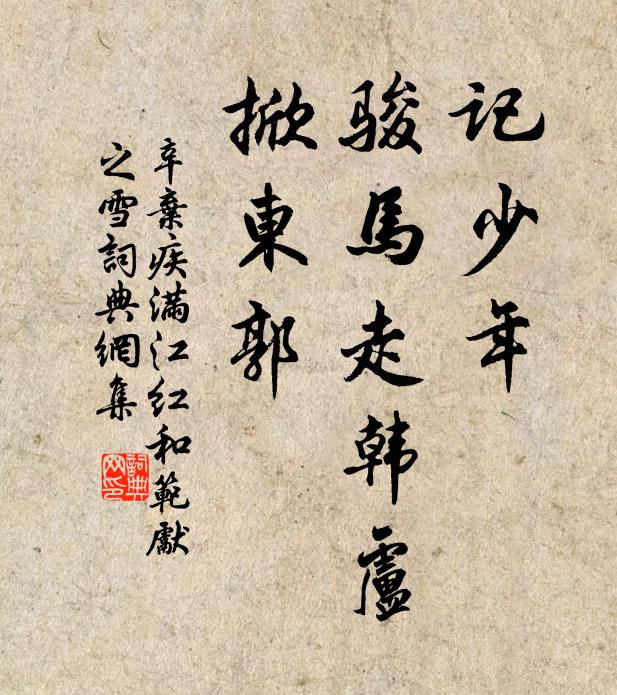 记少年
骏馬走韩盧
掀東郭
辛棄疾满江红和範獻
之雪詞典網集
詞典
网印